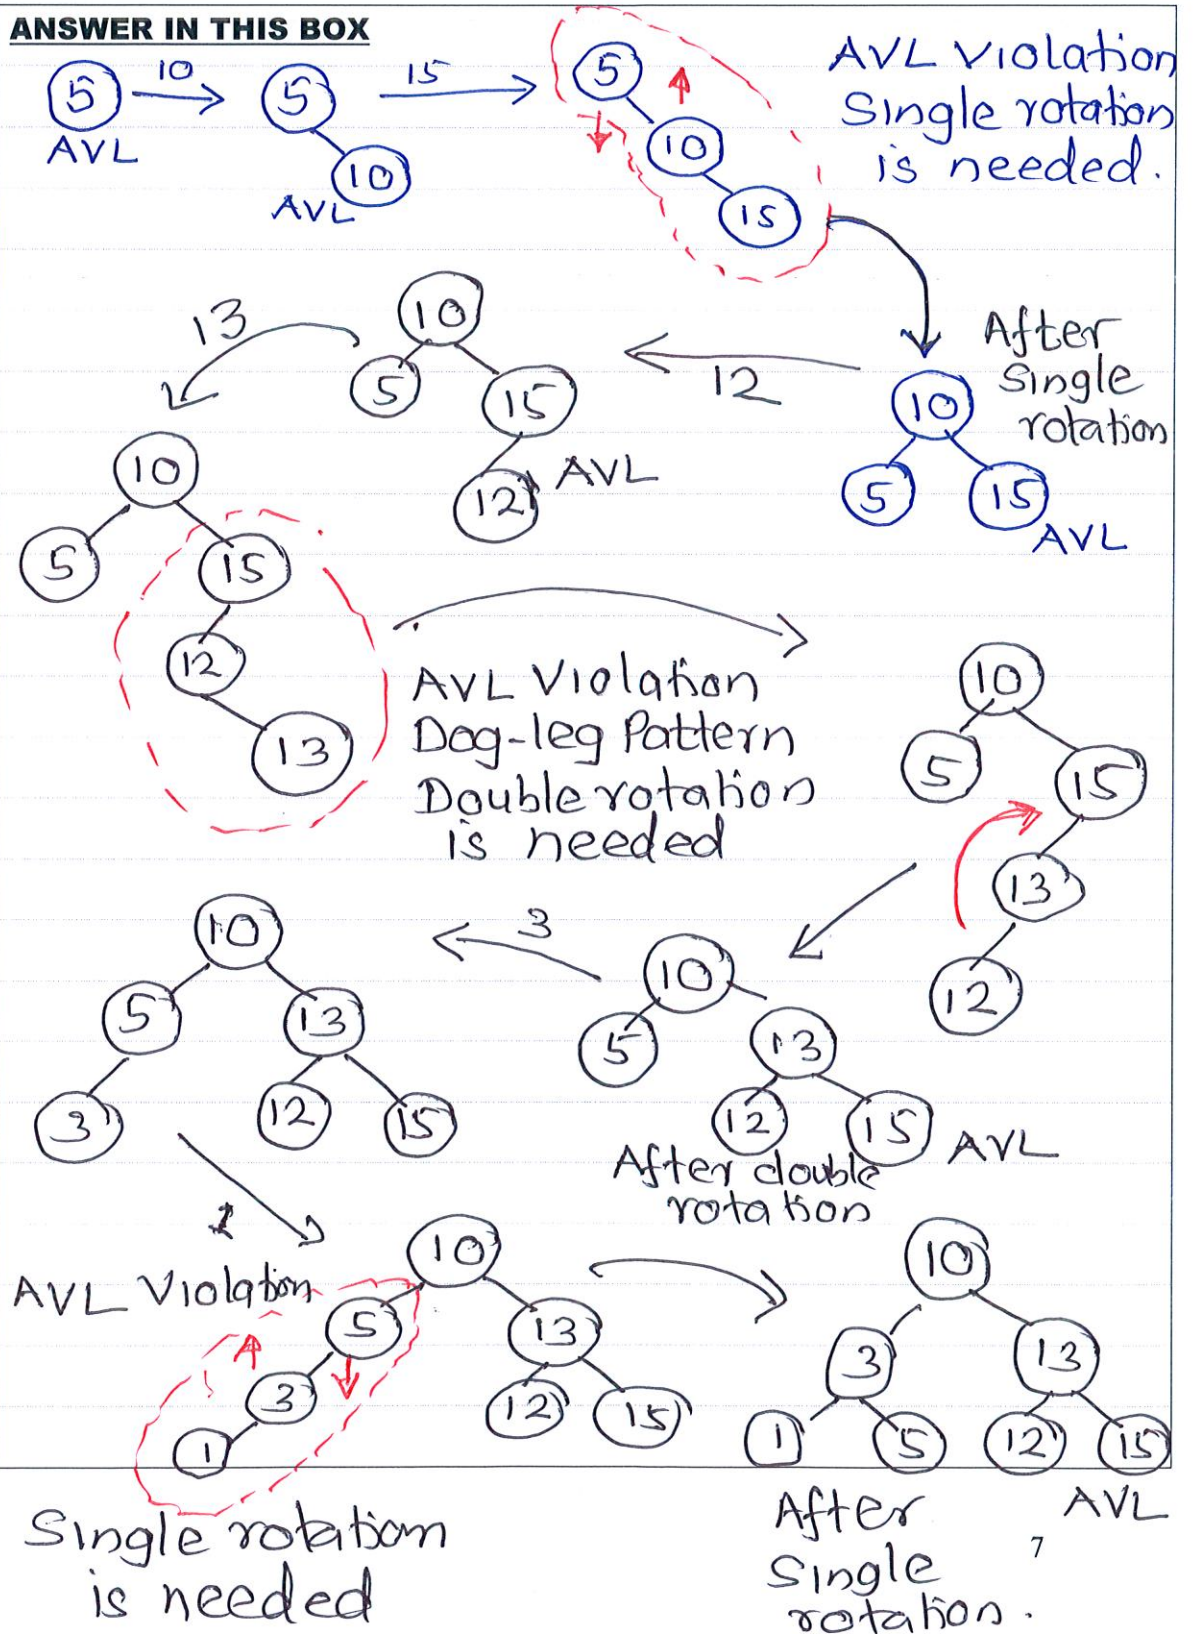 ANSWER IN THIS BOX
5
AVL
10
5
10
AVL
15
5
10
15
AVL Violation
Single rotation
is needed.
After
Single
rotation
10
5
15
AVL
12
10
5
15
12
AVL
13
10
5
15
12
13
AVL Violation
Dog-leg Pattern
Double rotation
is needed
10
5
15
13
12
10
5
13
12
15
AVL
After double
rotation
3
10
5
13
3
12
15
1
AVL Violation
10
5
13
3
12
15
1
Single rotation
is needed
10
3
13
1
5
12
15
AVL
After
Single
rotation.
7